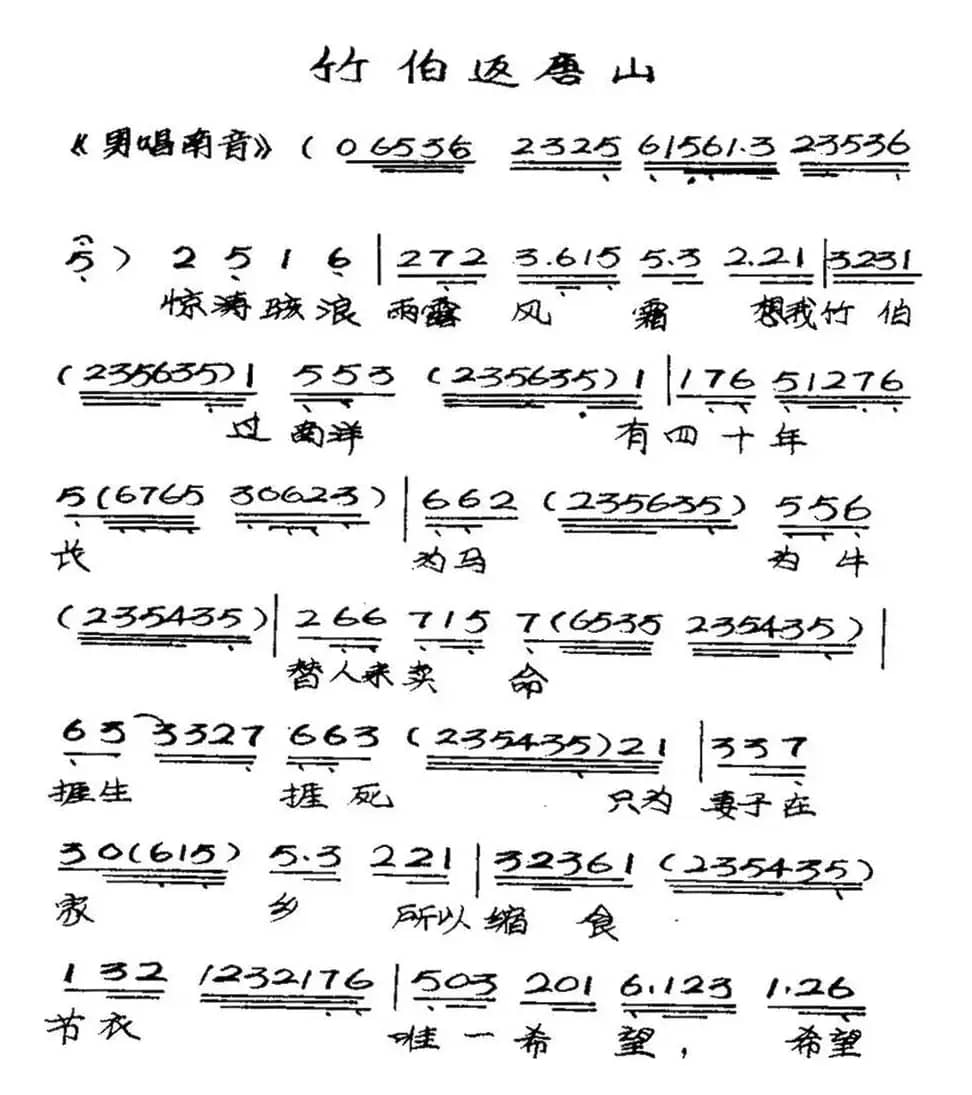 竹伯返唐山
《男唱南音》 (0 6536 2325 61561.3 23536
5) 2 5 1 6 | 272 3.615 5.3 2.21 | 3231
惊涛骇浪 雨露 风 霜 想我竹伯
(235635)1 553 (235635)1 | 176 51276
过南洋 有四十年
5(6765 30623) | 662 (235635) 556
长 为马 为牛
(235435) | 266 715 7(6535 235435) |
替人来卖 命
63 3327 663 (235435)21 | 337
捱生 捱死 只为 妻子在
30(615) 5.3 221 | 32361 (235435)
家 乡 所以缩 食
1 32 1232176 | 503 201 6.123 1.26
节衣 唯一希 望, 希望